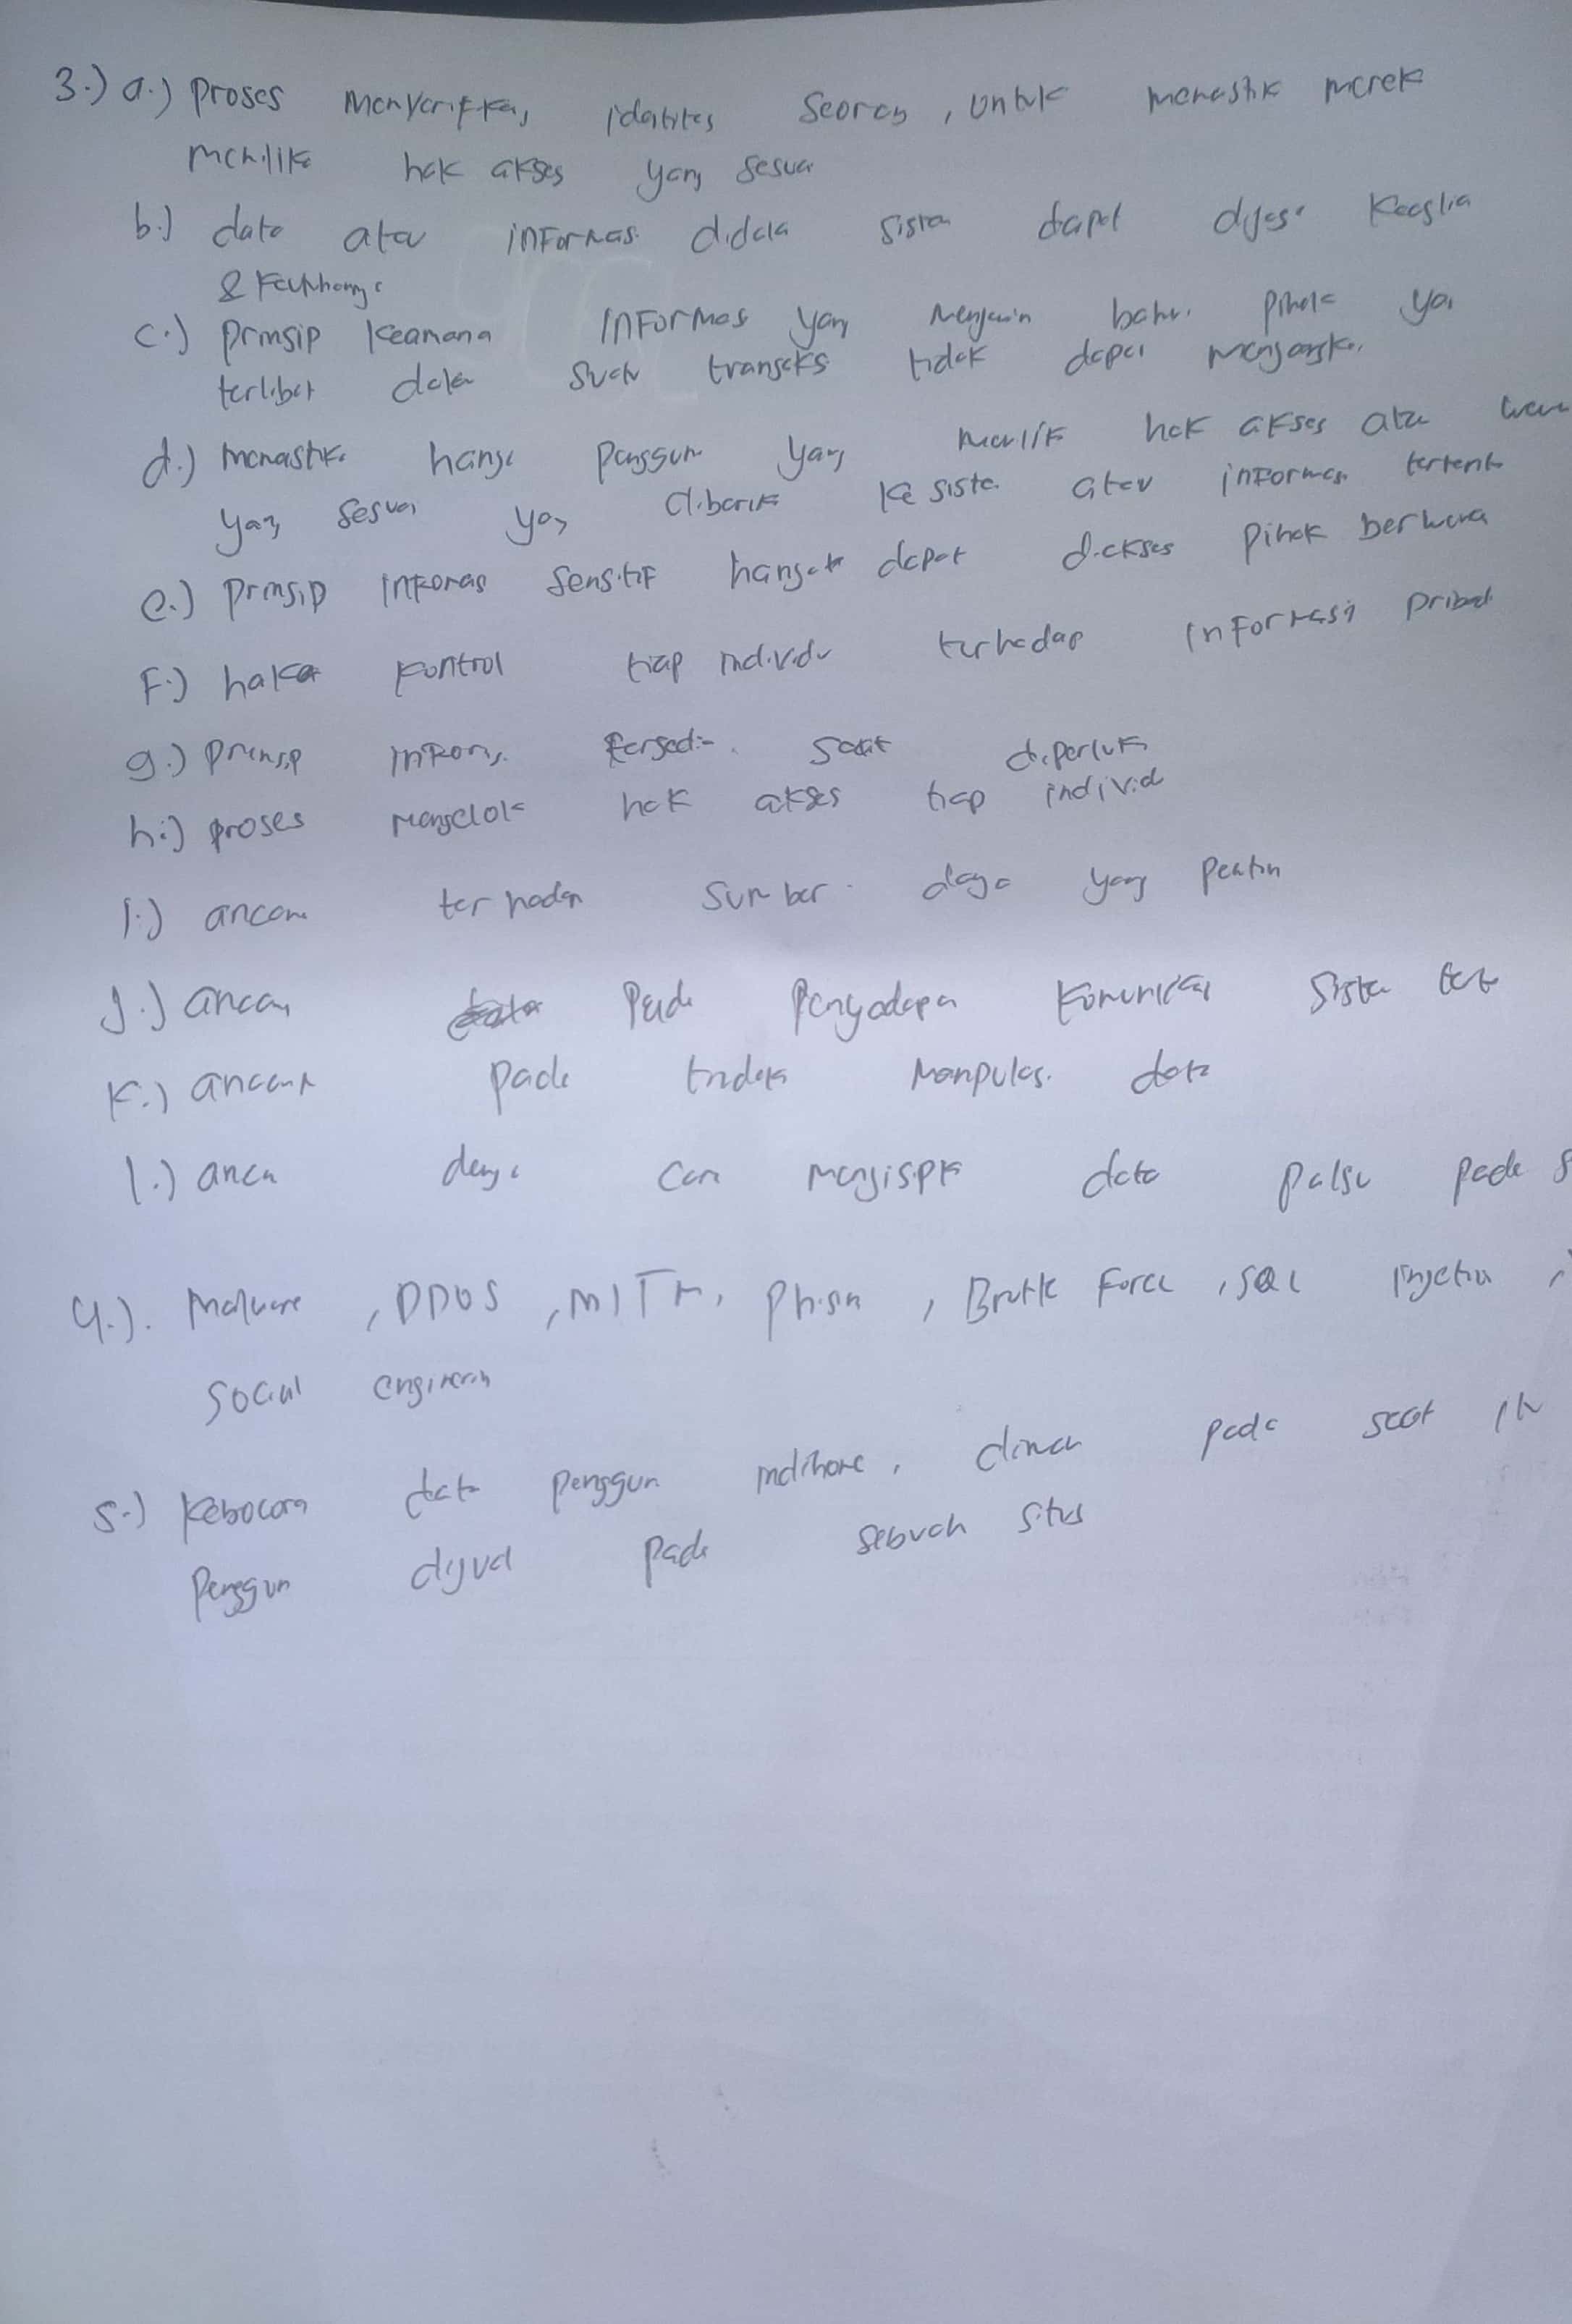 3.) a.) Proses menverifikas identitas seorang, untuk memastik merek
memilik hak akses yang sesuai
b.) data atau informas didala sistem dapat dijaga keaslia
& keutuhannya
c.) prinsip keamana informas yang menjamin bahw. pihak yan
terlibat dalam suatu transaks tidak dapat
d.) memastika hanya pengguna yang memilik hak akses atau
yang sesuai yan diberik ke siste atau informas tertentu
e.) prinsip informas sensitif dapat diakses pihak berwena
F.) hak kontrol tiap individu terhadap informasi pribad
g.) prinsip inform. tersedia saat diperluk
h.) proses mengelola hak akses tiap individ
i.) ancam terhadap sumber daya yang pentin
j.) ancam pada penyadapan komunikas siste
K.) ancam pada tindak manipulas. data
l.) anca denga cara menyisipk data palsu pada s
4.). Malware, DDOS, MITM, Phisin, Brutte Force, SQL injectin,
social enginerin
5.) Kebocora data penggun indihome, diman pada saat itu
penggun dijual pada sebuah situs